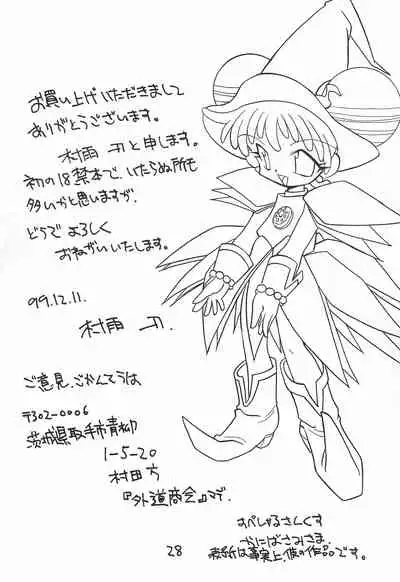 お買い上げいただきまして
ありがとうございます。
村雨 刃と申します。
初の18禁本で、いたらぬ所も
多いかと思いますが、
どうぞよろしく
おねがいいたします。
'99.12.11.
村雨 刃.
ご意見、ごかんそうは
〒302-0006
茨城県取手市青柳
1-5-20
村田方
『外道商会』まで.
すぺしゃるさんくす
かにばさみさま.
表紙は事実上、彼の作品です。
28